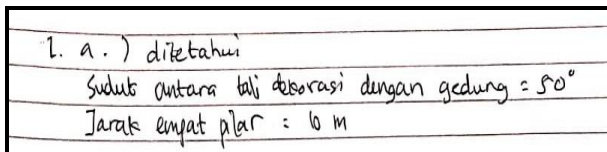 1. a.) diketahui
Sudut antara tali dekorasi dengan gedung = 50°
Jarak empat pilar : 10 m